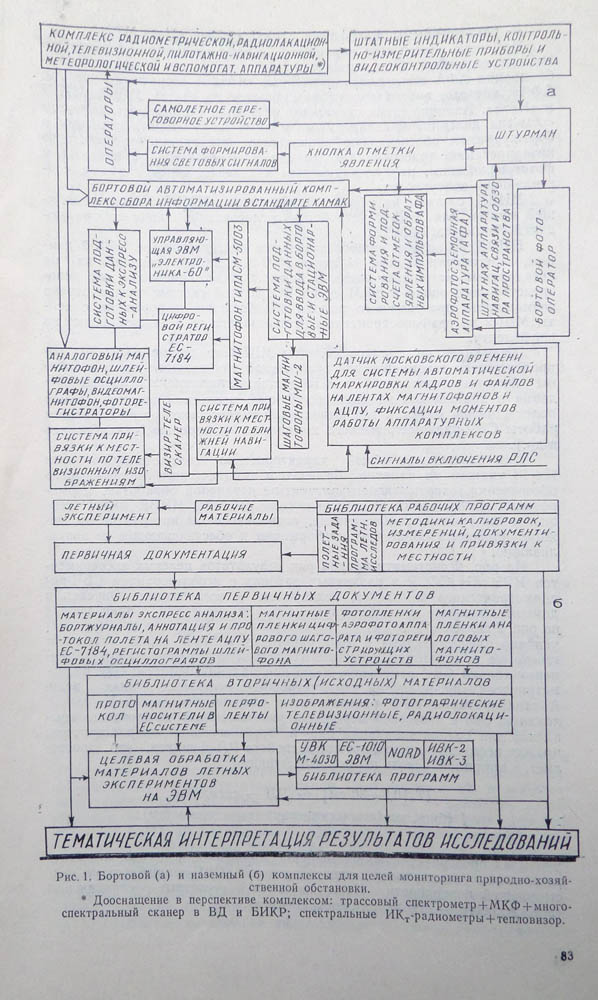 КОМПЛЕКС РАДИОМЕТРИЧЕСКОЙ, РАДИОЛАКАЦИОН-
НОЙ, ТЕЛЕВИЗИОННОЙ, ПИЛОТАЖНО-НАВИГАЦИОННОЙ,
МЕТЕОРОЛОГИЧЕСКОЙ И ВСПОМОГАТ. АППАРАТУРЫ *)
ШТАТНЫЕ ИНДИКАТОРЫ, КОНТРОЛЬ-
НО-ИЗМЕРИТЕЛЬНЫЕ ПРИБОРЫ И
ВИДЕОКОНТРОЛЬНЫЕ УСТРОЙСТВА
а
ОПЕРАТОРЫ
САМОЛЕТНОЕ ПЕРЕ-
ГОВОРНОЕ УСТРОЙСТВО
ШТУРМАН
СИСТЕМА ФОРМИРОВА-
НИЯ СВЕТОВЫХ СИГНАЛОВ
КНОПКА ОТМЕТКИ
ЯВЛЕНИЯ
БОРТОВОЙ АВТОМАТИЗИРОВАННЫЙ КОМП-
ЛЕКС СБОРА ИНФОРМАЦИИ В СТАНДАРТЕ КАМАК
СИСТЕМА ПОД-
ГОТОВКИ ДАН-
НЫХ К ЭКСПРЕСС
-АНАЛИЗУ
УПРАВЛЯЮ-
ЩАЯ ЭВМ
„ЭЛЕКТРО-
НИКА-60"
ЦИФРО-
ВОЙ РЕГИ
СТРАТОР
ЕС-
7184
МАГНИТОФОН ТИПА СМ-5003
СИСТЕМА ПОД-
ГОТОВКИ ДАННЫХ
ДЛЯ ВВОДА В БОРТО
ВЫЕ И СТАЦИОНАР-
НЫЕ ЭВМ
ШАГОВЫЕ МАГНИ
ТОФОНЫ МШ-2
СИСТЕМА ФОРМИ
РОВАНИЯ И ПОД-
СЧЕТА ОТМЕТОК
ЯВЛЕНИЯ И ОБРАТ-
НЫХ ИМПУЛЬСОВ АФА
АЭРОФОТОСЪЕМОЧНАЯ
АППАРАТУРА (АФА)
ШТАТНАЯ АППАРАТУРА
НАВИГАЦ., СВЯЗИ И ОБЗО
РА ПРОСТРАНСТВА
БОРТОВОЙ ФОТО-
ОПЕРАТОР
АНАЛОГОВЫЙ МАГ
НИТОФОН, ШЛЕЙ-
ФОВЫЕ ОСЦИЛЛО-
ГРАФЫ, ВИДЕОМАГ-
НИТОФОН, ФОТОРЕ-
ГИСТРАТОРЫ
СИСТЕМА ПРИ-
ВЯЗКИ К МЕСТ-
НОСТИ ПО ТЕЛЕ
ВИЗИОННЫМ ИЗО-
БРАЖЕНИЯМ
ВИЗИР-ТЕЛЕ
СКАНЕР
СИСТЕМА ПРИ
ВЯЗКИ К МЕСТ-
НОСТИ ПО БЛИ
ЖНЕЙ НАВИ-
ГАЦИИ
ДАТЧИК МОСКОВСКОГО ВРЕМЕНИ
ДЛЯ СИСТЕМЫ АВТОМАТИЧЕСКОЙ
МАРКИРОВКИ КАДРОВ И ФАЙЛОВ
НА ЛЕНТАХ МАГНИТОФОНОВ И
АЦПУ, ФИКСАЦИИ МОМЕНТОВ
РАБОТЫ АППАРАТУРНЫХ
КОМПЛЕКСОВ
СИГНАЛЫ ВКЛЮЧЕНИЯ РЛС
ЛЕТНЫЙ
ЭКСПЕРИМЕНТ
РАБОЧИЕ
МАТЕРИАЛЫ
БИБЛИОТЕКА РАБОЧИХ ПРОГРАММ
ПОЛЕТ-
НЫЕ ЗАДА
-НИЯ
ПРОГРАМ-
МА ЛЕТН.
ИССЛЕДОВ
МЕТОДИКИ КАЛИБРОВОК,
ИЗМЕРЕНИЙ, ДОКУМЕНТИ-
РОВАНИЯ И ПРИВЯЗКИ К
МЕСТНОСТИ
ПЕРВИЧНАЯ ДОКУМЕНТАЦИЯ
б
БИБЛИОТЕКА ПЕРВИЧНЫХ ДОКУМЕНТОВ
МАТЕРИАЛЫ ЭКСПРЕСС АНАЛИЗА:
БОРТЖУРНАЛЫ, АННОТАЦИЯ И ПРО
ТОКОЛ ПОЛЕТА НА ЛЕНТЕ АЦПУ
ЕС-7184, РЕГИСТОГРАММЫ ШЛЕЙ-
ФОВЫХ ОСЦИЛЛОГРАФОВ
МАГНИТНЫЕ
ПЛЕНКИ ЦИФ-
РОВОГО ШАГО-
ВОГО МАГНИТО-
ФОНА
ФОТОПЛЕНКИ
АЭРОФОТОАППА
РАТА И ФОТОРЕГИ
СТРИРУЮЩИХ
УСТРОЙСТВ
МАГНИТНЫЕ
ПЛЕНКИ АНА
ЛОГОВЫХ
МАГНИТО-
ФОНОВ
БИБЛИОТЕКА ВТОРИЧНЫХ (ИСХОДНЫХ) МАТЕРИАЛОВ
ПРОТО
КОЛ
МАГНИТНЫЕ
НОСИТЕЛИ В
ЕС СИСТЕМЕ
ПЕРФО-
ЛЕНТЫ
ИЗОБРАЖЕНИЯ: ФОТОГРАФИЧЕСКИЕ
ТЕЛЕВИЗИОННЫЕ, РАДИОЛОКАЦИ-
ОННЫЕ
ЦЕЛЕВАЯ ОБРАБОТКА
МАТЕРИАЛОВ ЛЕТНЫХ
ЭКСПЕРИМЕНТОВ
НА ЭВМ
УВК
М-4030
ЕС-1010
ЭВМ
NORD
ИВК-2
ИВК-3
БИБЛИОТЕКА ПРОГРАММ
ТЕМАТИЧЕСКАЯ ИНТЕРПРЕТАЦИЯ РЕЗУЛЬТАТОВ ИССЛЕДОВАНИЙ
Рис. 1. Бортовой (а) и наземный (б) комплексы для целей мониторинга природно-хозяй-
ственной обстановки.
* Дооснащение в перспективе комплексом: трассовый спектрометр+МКФ+много-
спектральный сканер в ВД и БИКР; спектральные ИКт-радиометры+тепловизор.
83